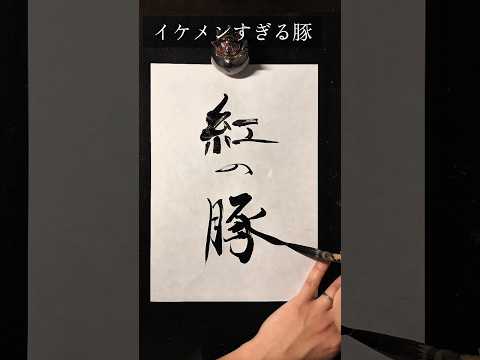 イケメンすぎる豚
紅の豚